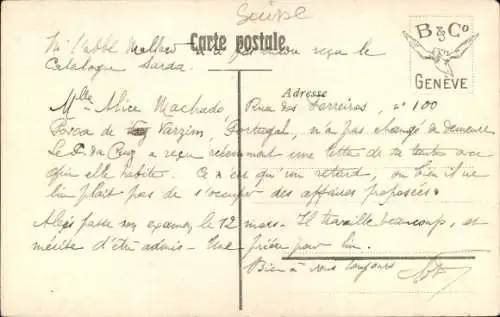 Suisse
Carte postale
B & Co
GENÈVE
Ni l'abbé n'a pas encore reçu le
Catalogue Sarda.
Adresse
Mlle Alice Machado, Rua dos Ferreiros, no 100
Povoa de Varzim, Portugal, n'a pas changé de demeure
Le P. da Cruz a reçu récemment une lettre de sa tante avec
qui elle habite. Ce n'est qu'un retard, ou bien il ne
lui plait pas de s'occuper des affaires proposées.
passe ses examens le 12 mars. Il travaille beaucoup, et
mérite d'être admis. Une prière pour lui.
Bien à vous toujours